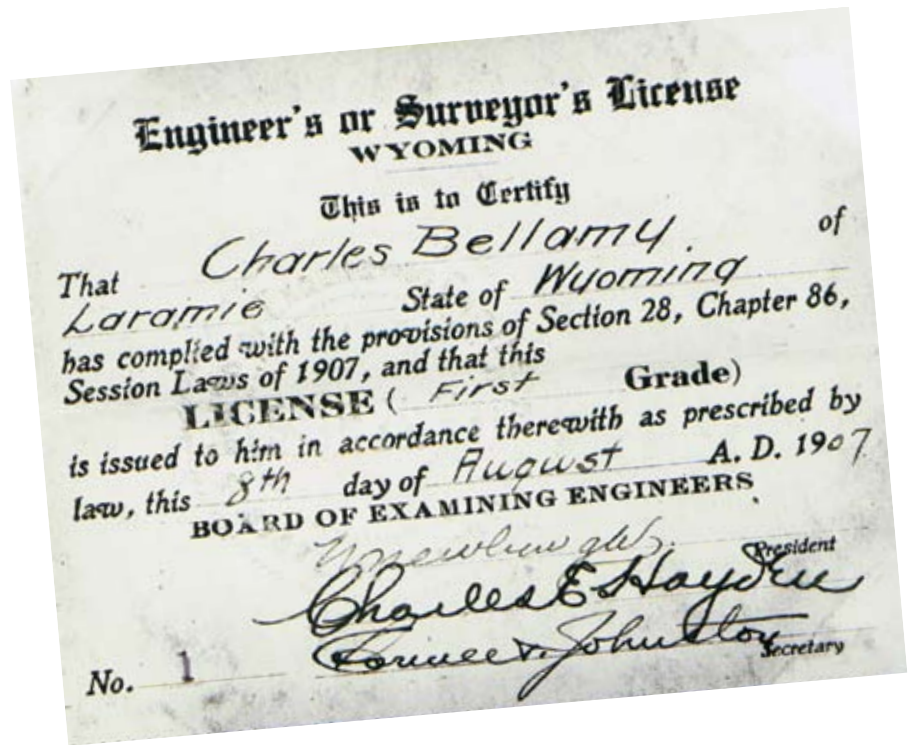 Engineer's or Surveyor's License
WYOMING
This is to Certify
That Charles Bellamy. of
Laramie State of Wyoming
has complied with the provisions of Section 28, Chapter 86,
Session Laws of 1907, and that this
LICENSE ( First Grade)
is issued to him in accordance therewith as prescribed by
law, this 8th day of August A. D. 1907
BOARD OF EXAMINING ENGINEERS
President
Charles E Hayden
Johnston
No. 1 Secretary